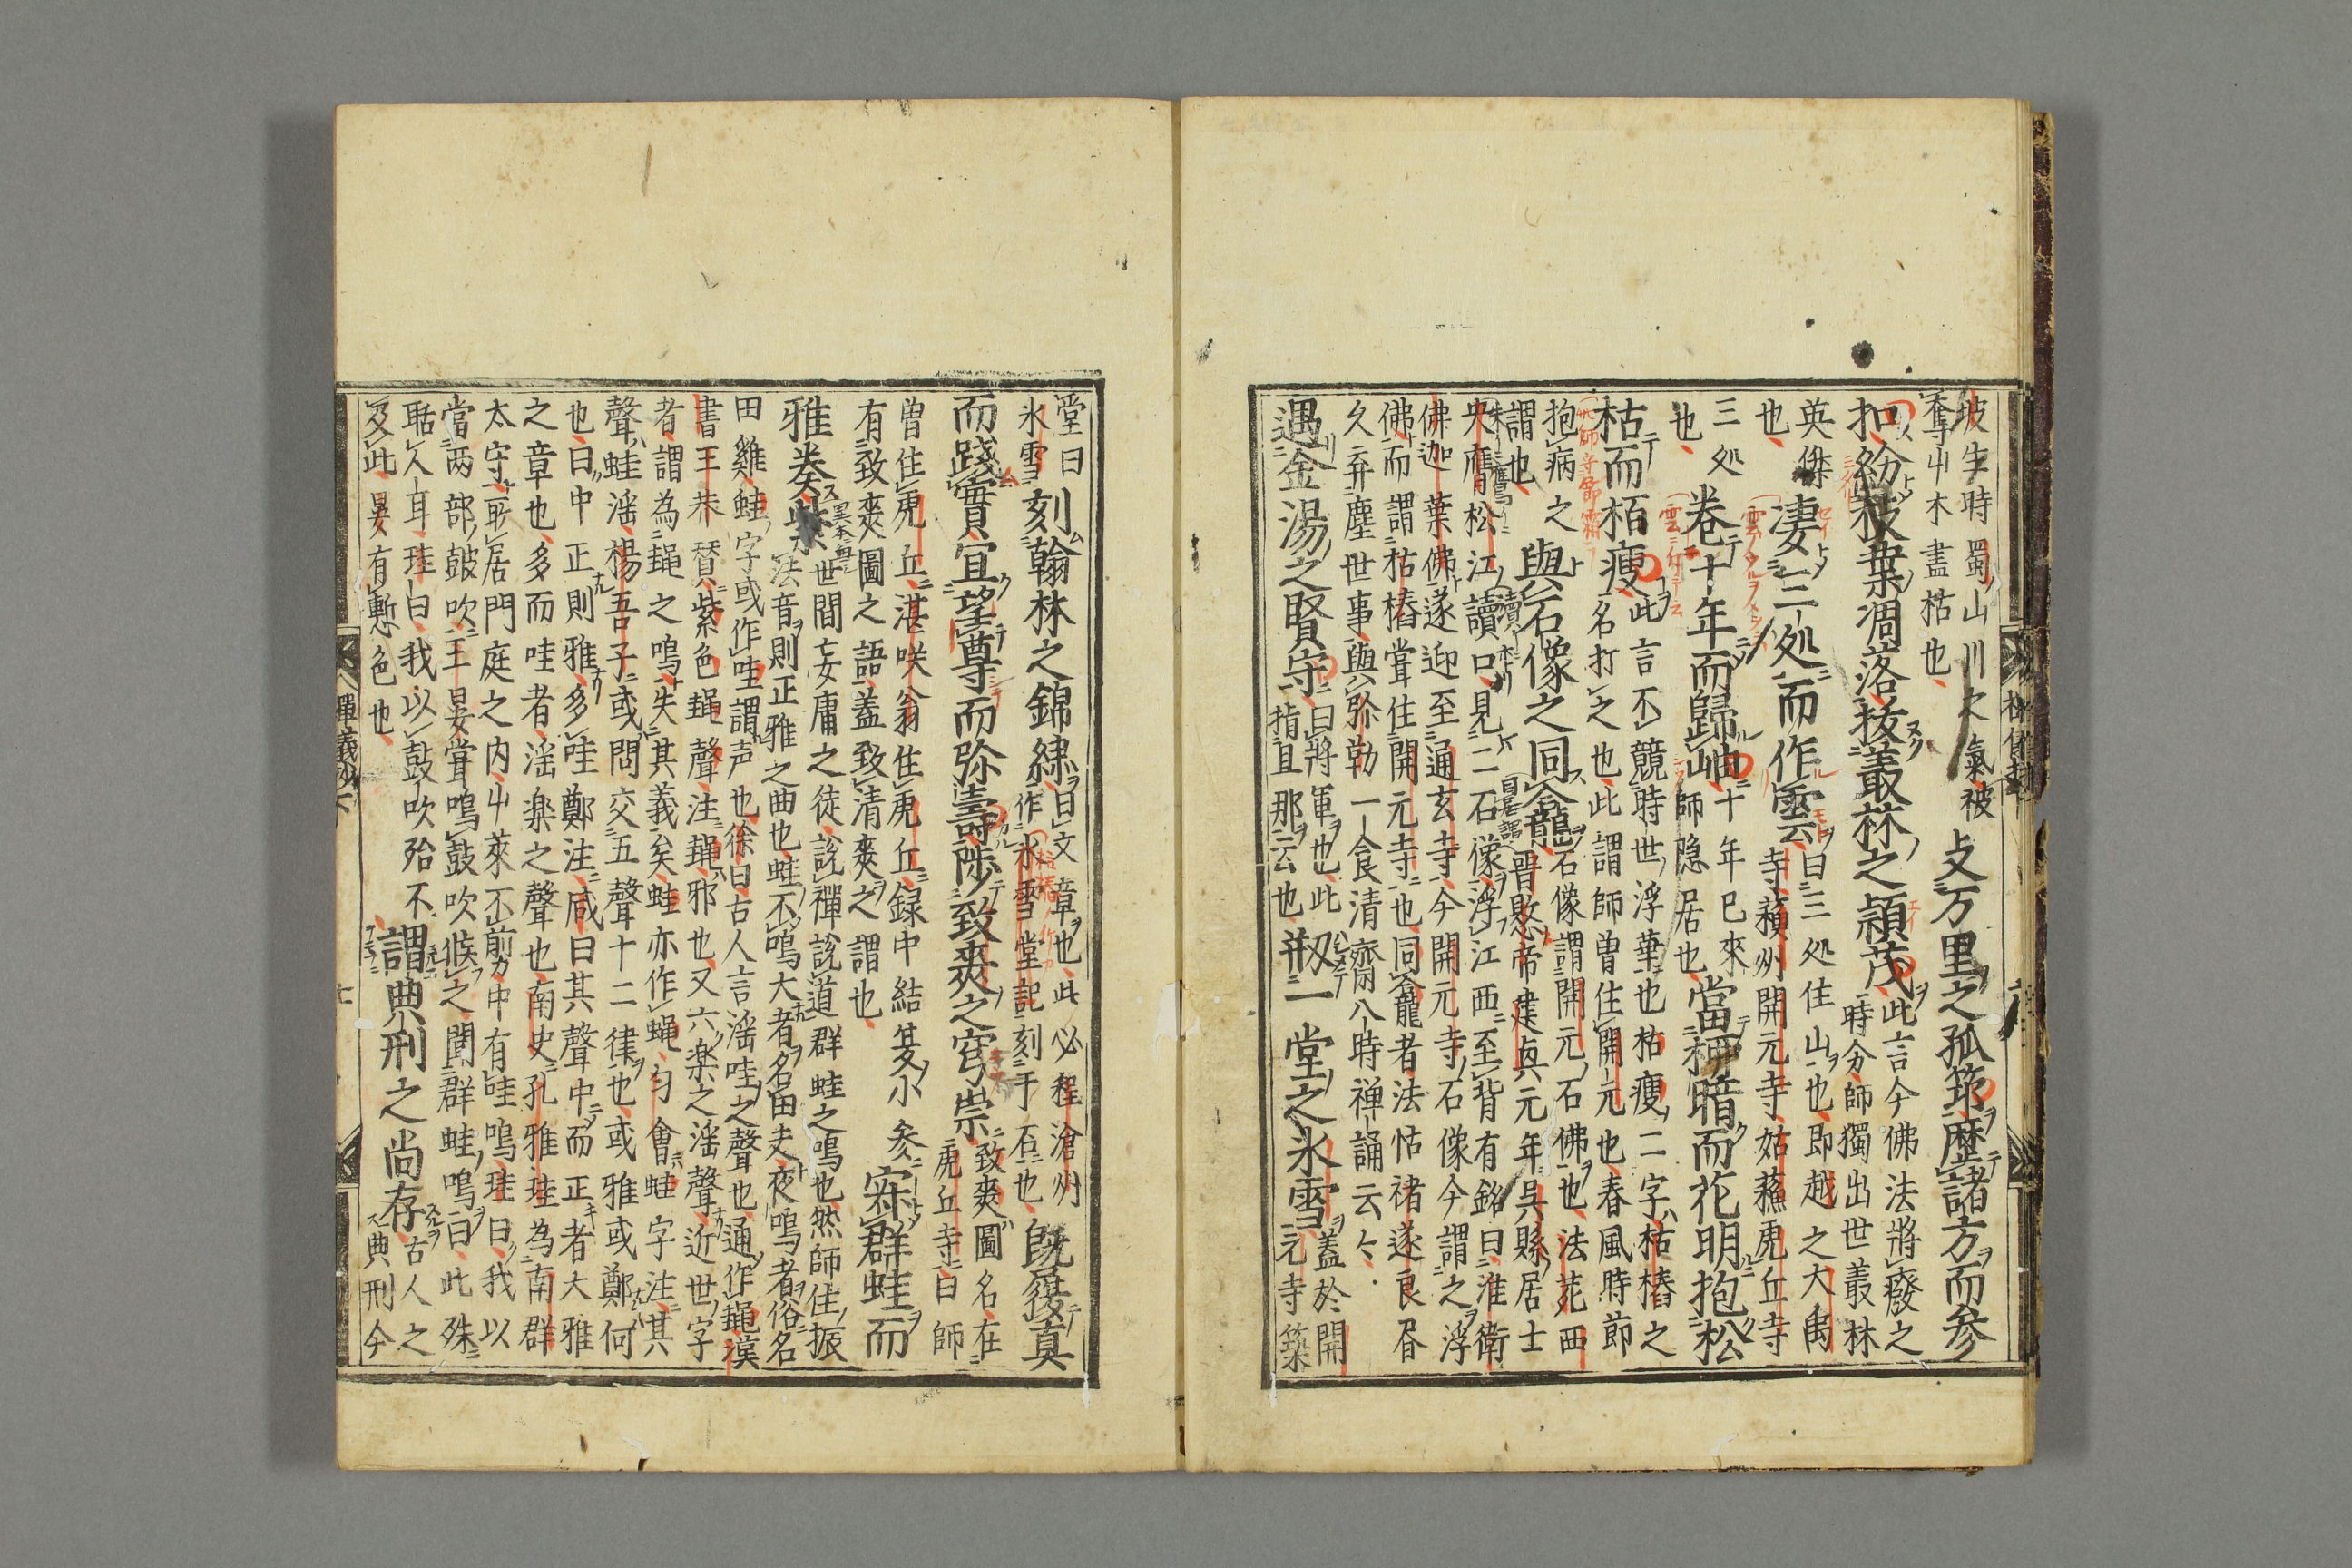 坡生時蜀山川之氣被
奪草木盡枯也
攴万里之孤筇歴諸方而参
扣紛枝葉凋落抜叢林之頴茂
此言今佛法將癈之
時分師獨出世叢林
英傑也
凄三処而作雲
曰三処住山也即越之大禹
寺蘋州開元寺姑蘓虎丘寺
三処也
巻十年而歸岫
十年已來
師隐居也
當柳暗而花明抱松
枯而栢瘦
此言不競時世浮華也枯瘦二字枯椿之
名打之也此謂師曽住開元也春風時節
抱病之謂也
與石像之同龕
石像謂開元石佛也法苑西
晋愍帝建真元年呉縣居士
朱膺松江讀口見二石像浮江西至背有銘曰淮衛
佛迦葉佛遂迎至通玄寺今開元寺石像今謂之浮
佛而謂枯椿嘗住開元寺也同龕者法怙禇遂良昏
久弃塵世事與弥勒一食清齋八時禅誦云々
遇金湯之賢守
曰將軍也此
揩且那云也
刱并一堂之氷雪
蓋於開
元寺築
堂曰
氷雪
刻翰林之錦綉
曰文章也此必程滄州
作氷雪堂記刻于石也
既履真
而踐實宜望尊而弥壽陟致爽之穹崇
致爽圖名在
虎丘寺曰師
曽住虎丘湛咲翁住虎丘録中結夏小参
有致爽圖之語蓋致清爽之謂也
寀群蛙而
雅奏紫
世間妄庸之徒說禪說道群蛙之鳴也然師住振
法音則正雅之曲也蛙不鳴大者名田夫夜鳴者俗名
田雞蛙字或作哇謂声也徐曰古人言滛哇之聲也通作䵷漢
書王莽賛紫色䵷聲注䵷邪也又六楽之滛聲近世字
者謂為䵷之鳴失其義矣蛙亦作蝿匀會蛙字注其
聲蛙滛楊吾子或問交五聲十二律也或雅或鄭何
也曰中正則雅多哇鄭注咸曰其聲中而正者大雅
之章也多而哇者滛楽之聲也南史孔雅珪為南群
太守取居門庭之内草莱不剪中有哇鳴珪曰我以
當两部皷吹王晏嘗鳴鼓吹候之聞群蛙鳴曰此殊
聒人耳珪曰我以鼓吹殆不
及此晏有慙色也
謂典刑之尚存
古人之
典刑今